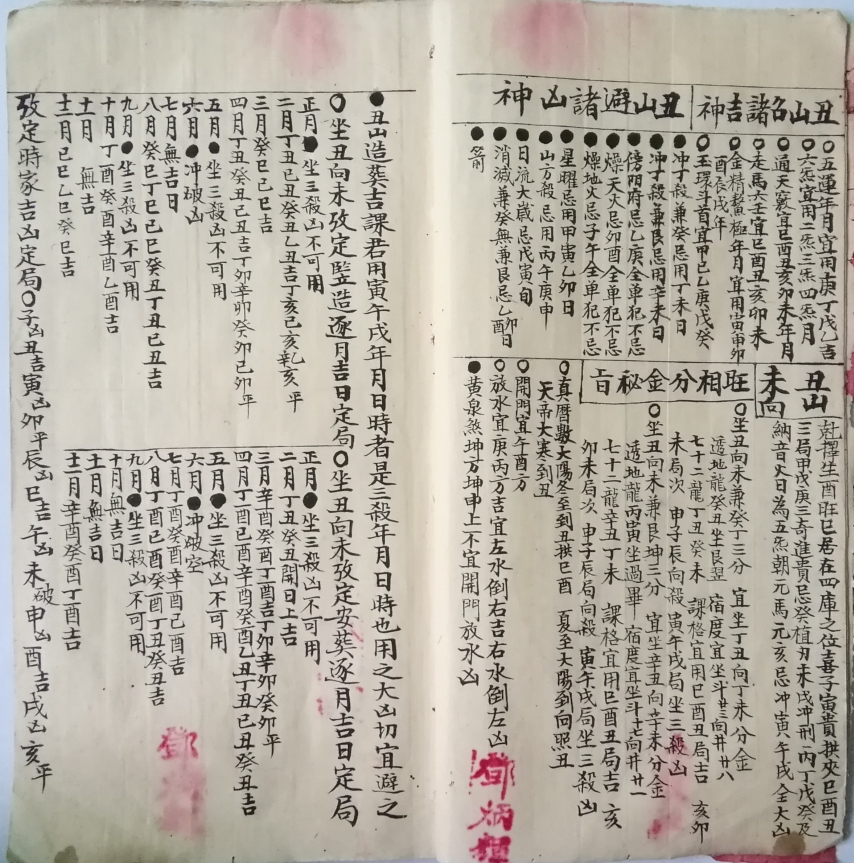 丑山名諸吉神
〇五運年月宜用庚丁戊乙吉
〇六炁宜用二炁三炁四炁月
〇通天竅宜巳酉丑亥卯未年月
〇走馬六壬宜巳酉丑亥卯未
〇金精鰲極年月宜用寅申卯
酉辰戌年
〇玉環斗首宜甲己乙庚戊癸
丑山避諸凶神
●冲丁殺兼癸忌用丁未日
●冲丁殺兼艮忌用辛未日
●傍陰府忌乙庚全單犯不忌
●燥天火忌卯酉全單犯不忌
●燥地火忌子午全單犯不忌
●星曜忌用甲寅乙卯日
●山方殺忌用丙午庚申
●日流大歲忌戊寅旬
●消滅兼癸無兼艮忌乙酉卯日
●箭
丑山
未向
尅擇生酉旺巳居在四庫之位喜子寅貴拱夾巳酉丑
三局甲戊庚三奇進貴忌癸植刃未戌冲刑丙丁戊癸及
納音火日為五炁朝元馬元亥忌冲寅午戌全大凶
旺相分金秘旨
〇坐丑向未兼癸丁三分 宜坐丁丑向丁未分金
透地龍癸丑坐艮翌 宿度宜坐斗廿三向井廿八
七十二龍丁丑癸未 課格宜用巳酉丑局吉 亥卯
未局次 申子辰向殺寅午戌局坐三殺凶
〇坐丑向未兼艮坤三分 宜坐辛丑向辛未分金
透地龍丙寅坐過畢 宿度宜坐斗十七向井廿一
七十二龍辛丑丁未 課格宜用巳酉丑局吉 亥
卯未局次 申子辰局向殺 寅午戌局坐三殺凶
〇真曆數大陽冬至到丑拱巳酉 夏至大陽到向照丑
天帝大寒到丑
〇開門宜午酉方
〇放水宜庚丙方吉宜左水倒右吉右水倒左凶
●黄泉煞坤方坤申上不宜開門放水凶
●丑山造葬吉課君用寅午戌年月日時者是三殺年月日時也用之大凶切宜避之
〇坐丑向未攷定監造逐月吉日定局
正月●坐三殺凶不可用
二月丁丑己丑癸丑乙丑吉丁亥己亥乾亥平
三月癸巳己巳吉
四月丁丑癸丑己丑吉丁卯辛卯癸卯己卯平
五月●坐三殺凶不可用
六月●冲破凶
七月無吉日
八月癸巳丁巳己巳癸丑丁丑己丑吉
九月●坐三殺凶不可用
十月丁酉癸酉辛酉乙酉吉
十一月 無吉
十二月己巳乙巳癸巳吉
〇坐丑向未攷定安葬逐月吉日定局
正月●坐三殺凶不可用
二月丁丑癸丑開日上吉
三月辛酉癸酉丁酉吉丁卯辛卯癸卯平
四月丁酉己酉辛酉癸酉乙丑丁丑己丑癸丑吉
五月●坐三殺凶不可用
六月●冲破空
七月丁酉癸酉辛酉己酉吉
八月丁酉己酉癸酉丁丑癸丑吉
九月●坐三殺凶不可用
十月無吉日
十一月無吉日
十二月辛酉癸酉丁酉吉
攷定時家吉凶定局〇子凶丑吉寅凶卯平辰凶巳吉午凶未破申凶酉吉戌凶亥平
鄧
鄧炳